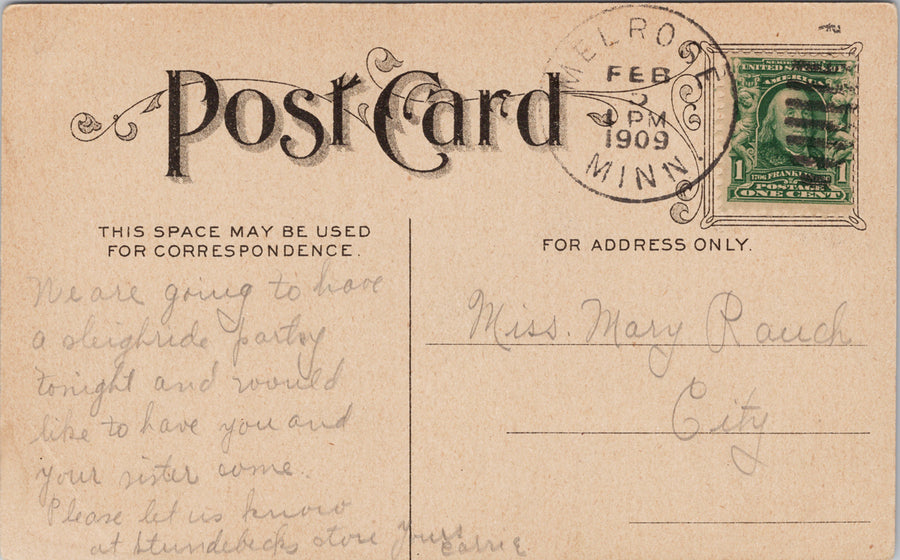 Post Card
MELROSE
FEB
5
1 PM
1909
MINN.
SERIES 1902
UNITED STATES OF
AMERICA
1 1706 FRANKLIN 1790 1
POSTAGE
ONE CENT
THIS SPACE MAY BE USED
FOR CORRESPONDENCE.
FOR ADDRESS ONLY.
We are going to have
a sleighride party
tonight and would
like to have you and
your sister come.
Please let us know
at store Yours
Carrie
Miss. Mary Rauch
City